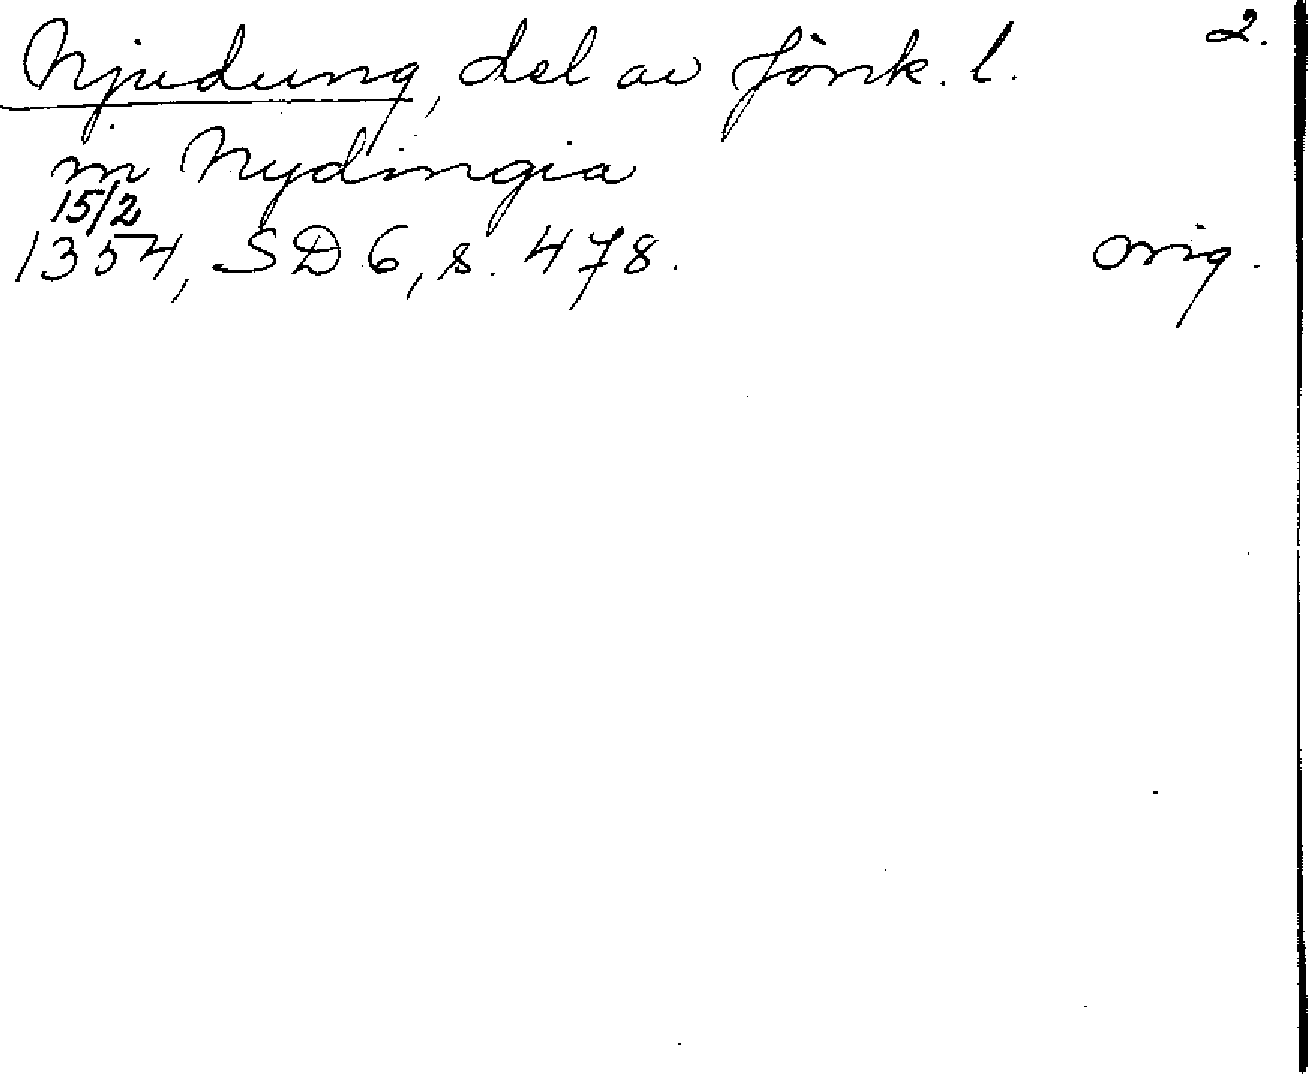 Njudung, del av Jönk. l. 2.
in Nydingia
15/2
1354, SD 6, s. 478. orig.